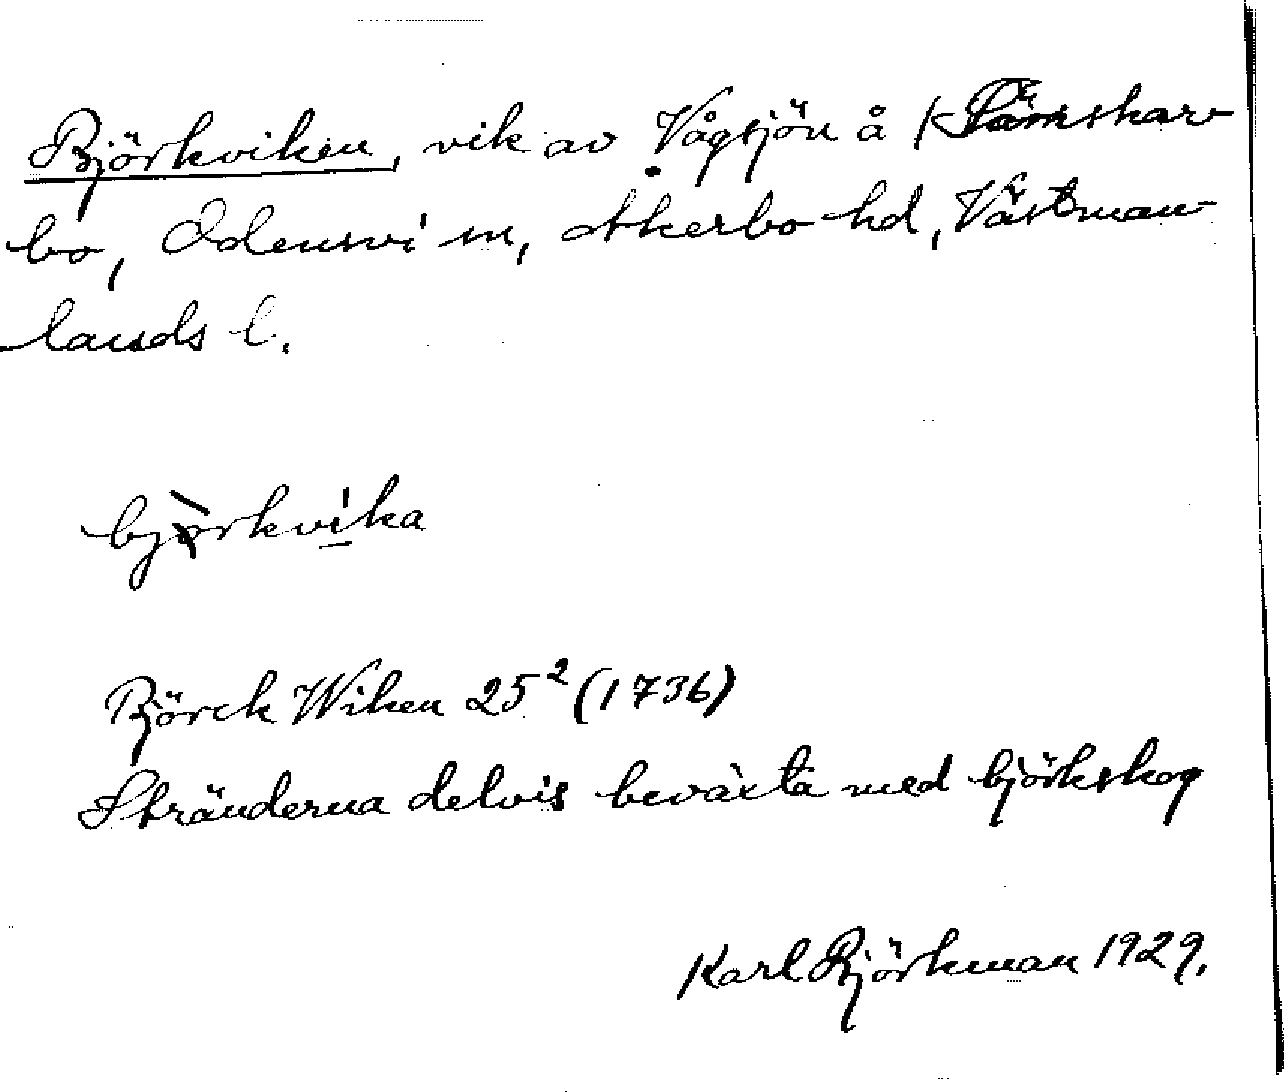 Björkviken, vik av Vågsjön å Tämskar
bo, Odensvi sn, Åkerbo hd, Västman
lands l.
björkvika
Björck Wiken 25² (1736)
Stränderna delvis beväxta med björkskog
Karl Björkman 1929.